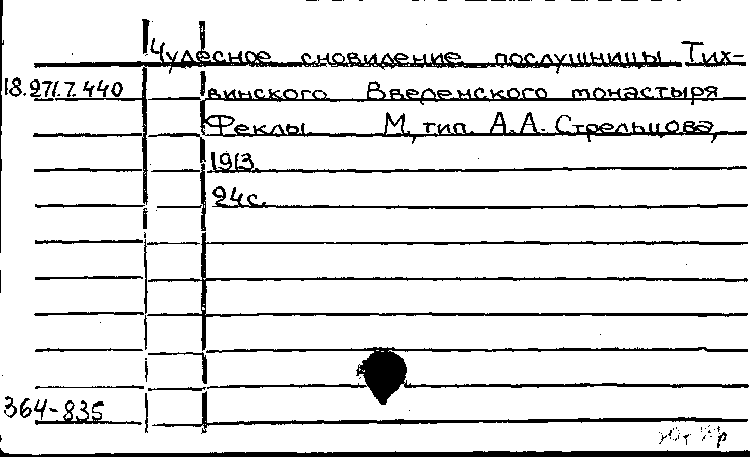 Чудесное сновидение послушницы Тих-
18.271.7.440 винского Введенского монастыря
Феклы. М, тип. А.А. Стрельцова,
1913.
24с.
364-835